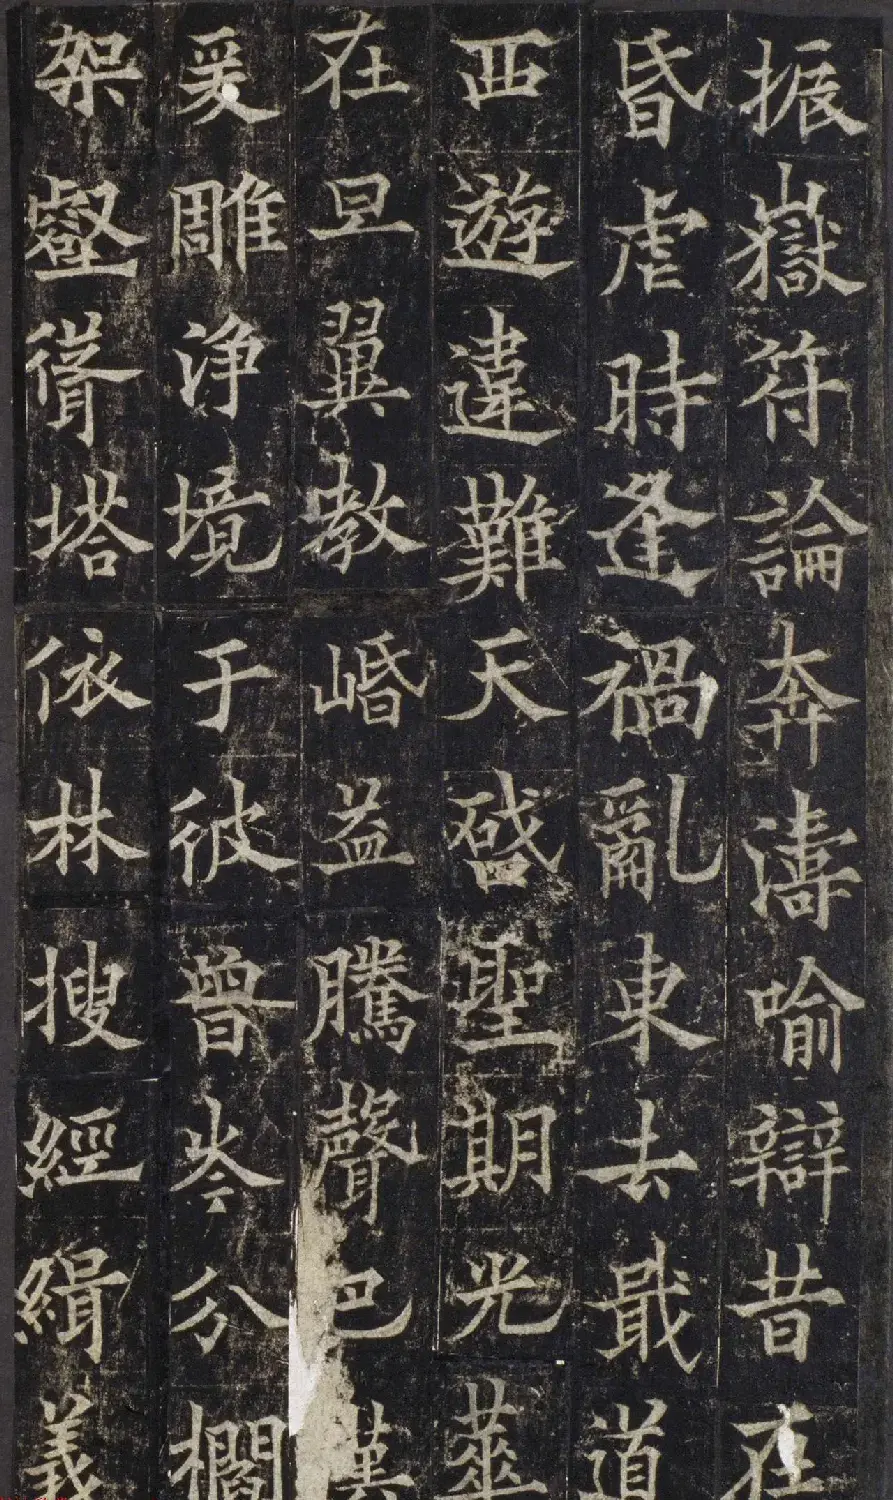 振嶽符論奔濤喻辯昔在
昏虐時逢禍亂東去戢道
西遊違難天啓聖期光華
在旦翼教崏益騰聲巴漢
爰雕浄境于彼曾岑分櫩
架壑聳塔依林搜經緝義